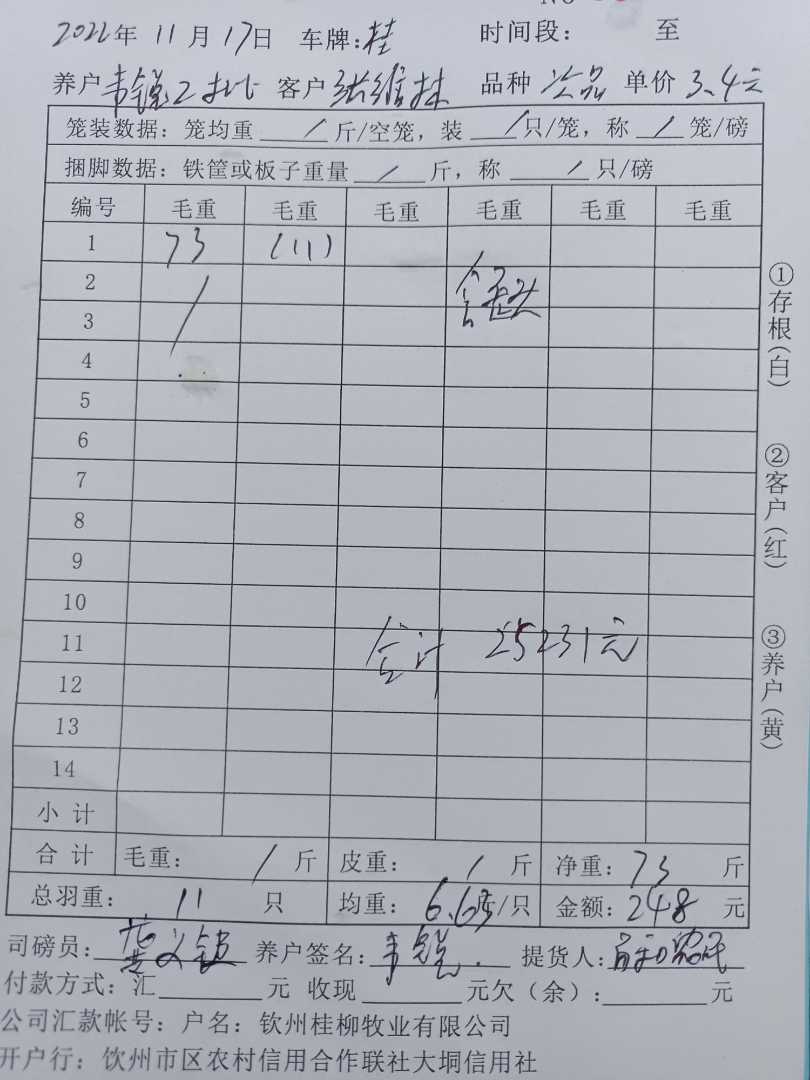 2022年 11月17日 车牌:桂 时间段: 至
养户 韦锐2批 客户 张维林 品种 次品 单价 3.4元
笼装数据: 笼均重 / 斤/空笼, 装 / 只/笼, 称 / 笼/磅
捆脚数据: 铁筐或板子重量 / 斤, 称 / 只/磅
编号 毛重 毛重 毛重 毛重 毛重 毛重
1 73 (11)
2
3
4
5
6
7
8
9
10
11 合计 25231元
12
13
14
小计
合计 毛重: / 斤 皮重: / 斤 净重: 73 斤
总羽重: 11 只 均重: 6.63斤/只 金额: 248 元
司磅员: 养户签名: 韦锐 提货人:
付款方式: 汇 元 收现 元欠(余): 元
公司汇款帐号: 户名: 钦州桂柳牧业有限公司
开户行: 饮州市区农村信用合作联社大垌信用社
①存根(白)
②客户(红)
③养户(黄)